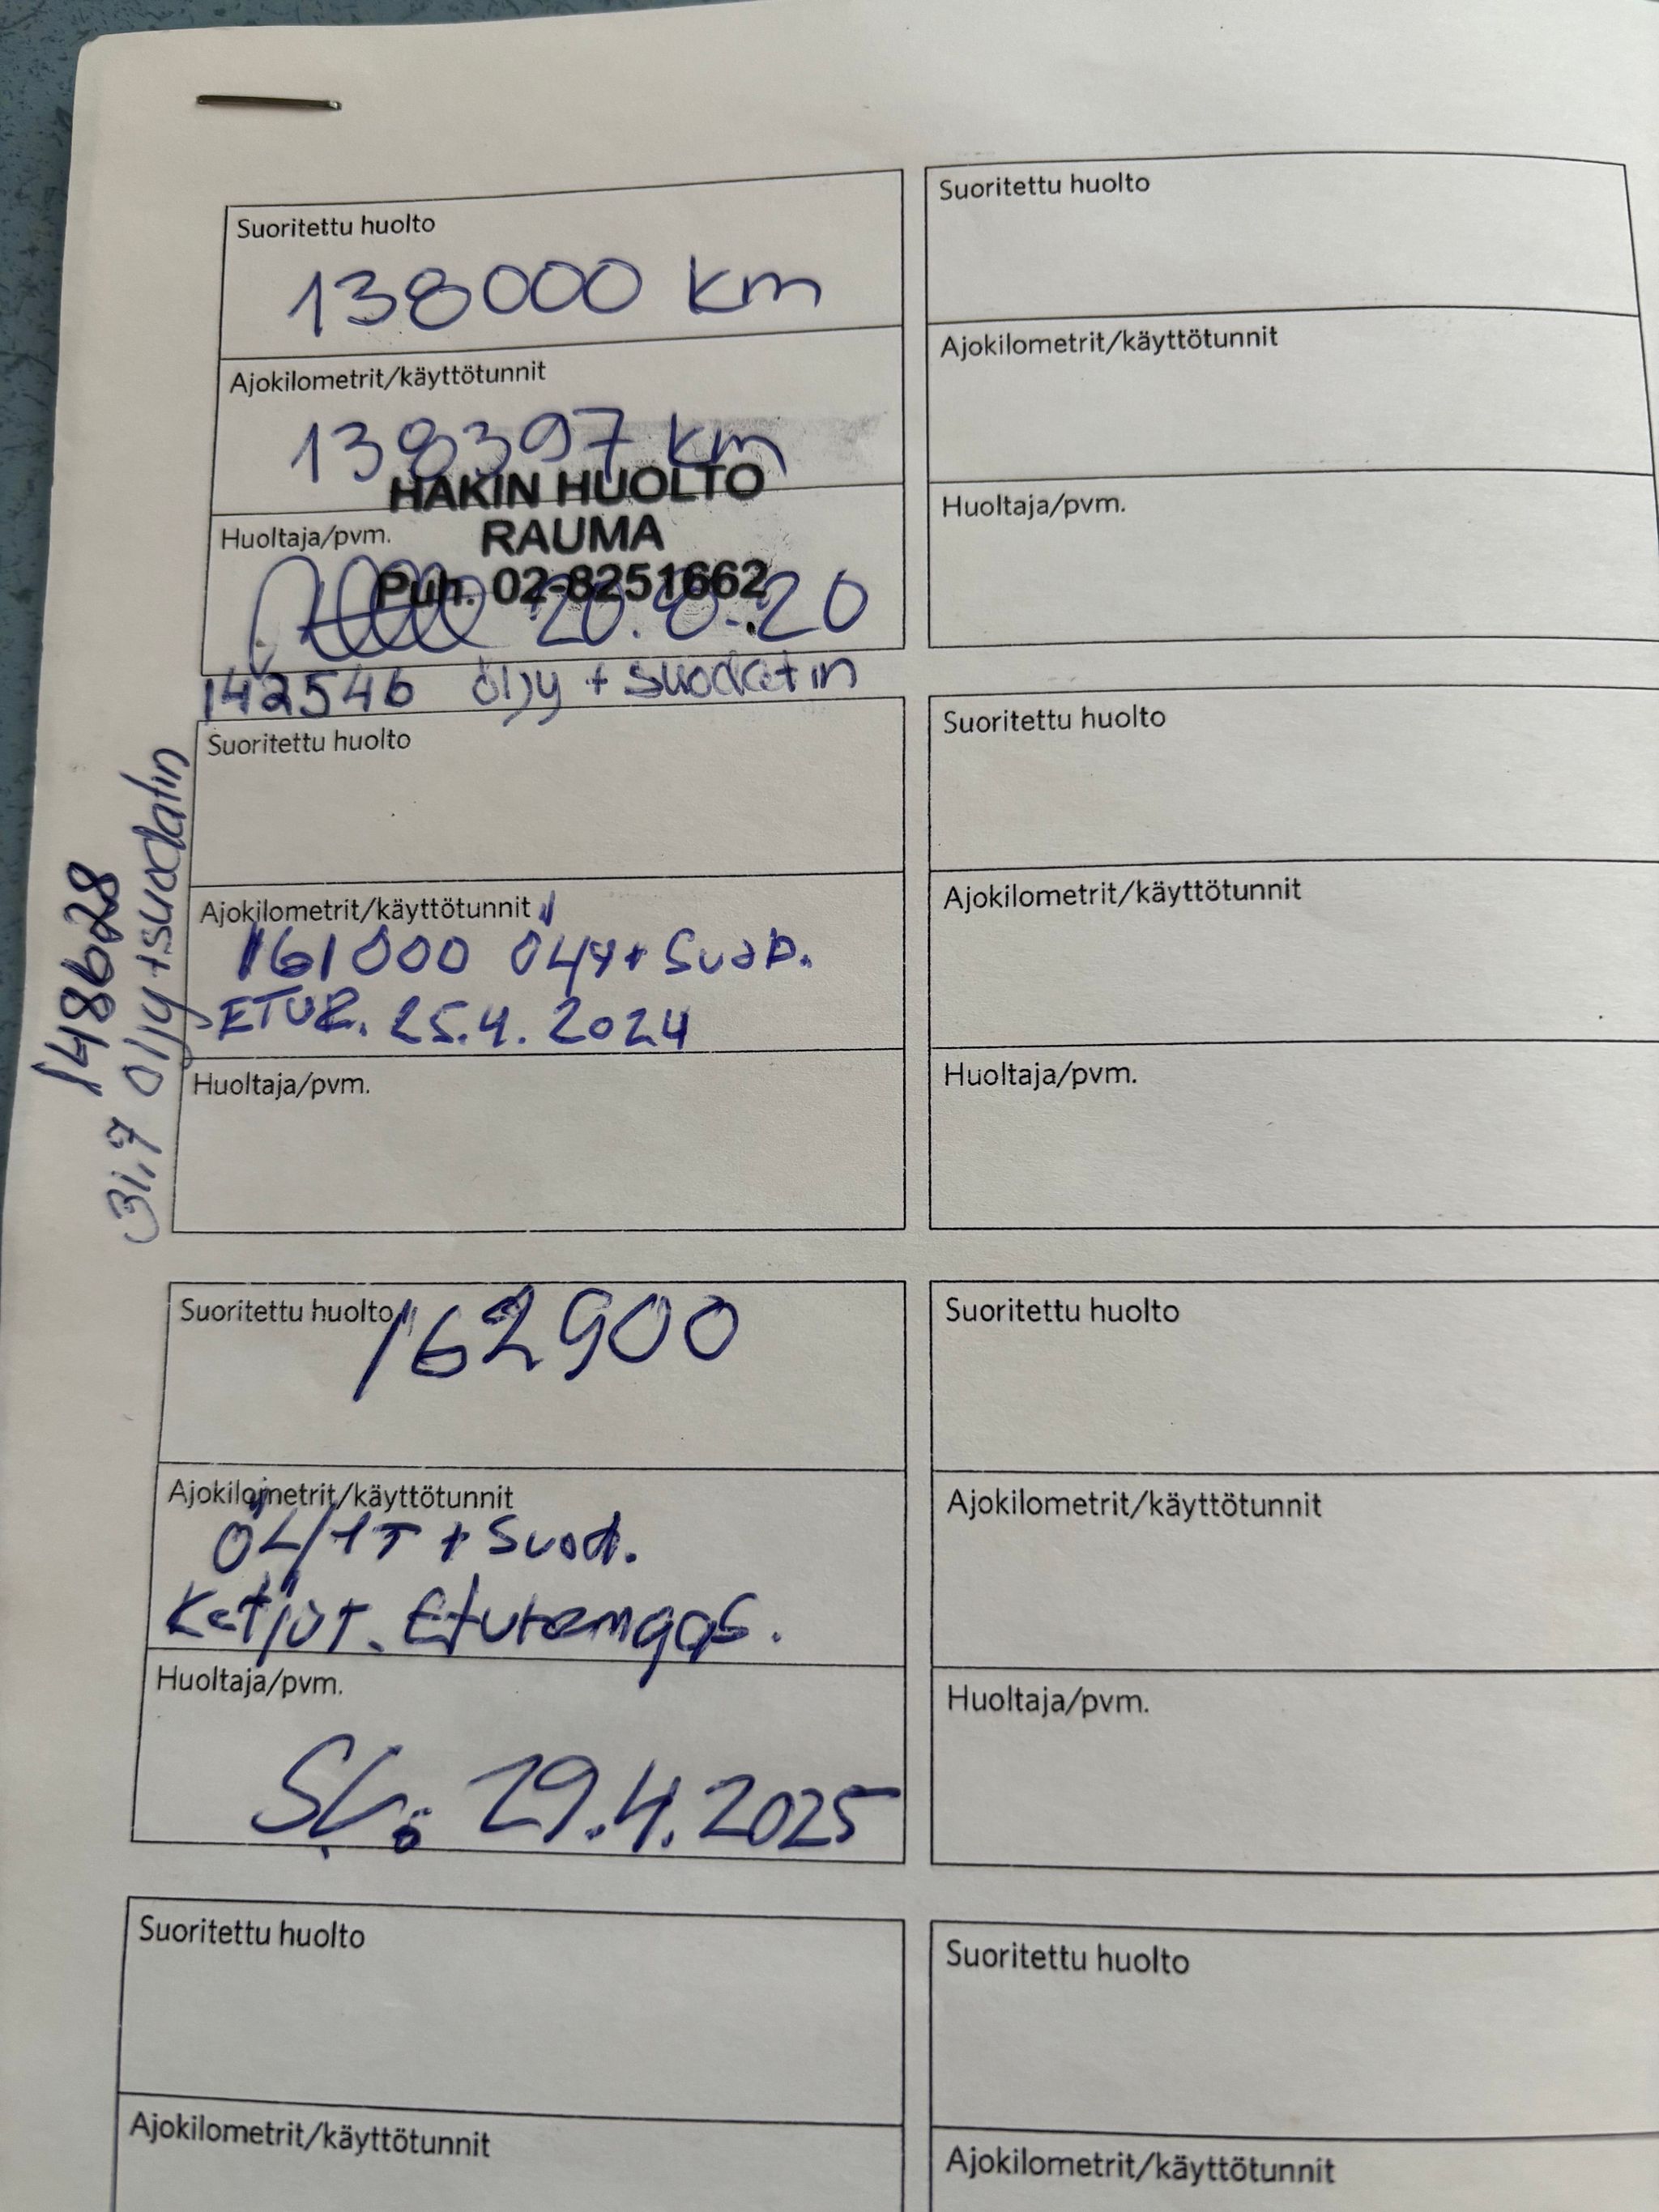 Suoritettu huolto
138000 km
Ajokilometrit/käyttötunnit
138397 km
HAKIN HUOLTO
RAUMA
Puh. 02-8251662
Huoltaja/pvm.
20.8.20
142546 öljy + suodatin
148628
31.7 öljy + suodatin
Suoritettu huolto
Ajokilometrit/käyttötunnit
161000 ÖLJY + SUOD.
ETUR. 25.4. 2024
Huoltaja/pvm.
Suoritettu huolto
162900
Ajokilometrit/käyttötunnit
ÖLJYT + Suod.
Ketjut. Eturengas.
Huoltaja/pvm.
29.4.2025
Suoritettu huolto
Ajokilometrit/käyttötunnit
Suoritettu huolto
Ajokilometrit/käyttötunnit
Huoltaja/pvm.
Suoritettu huolto
Ajokilometrit/käyttötunnit
Huoltaja/pvm.
Suoritettu huolto
Ajokilometrit/käyttötunnit
Huoltaja/pvm.
Suoritettu huolto
Ajokilometrit/käyttötunnit